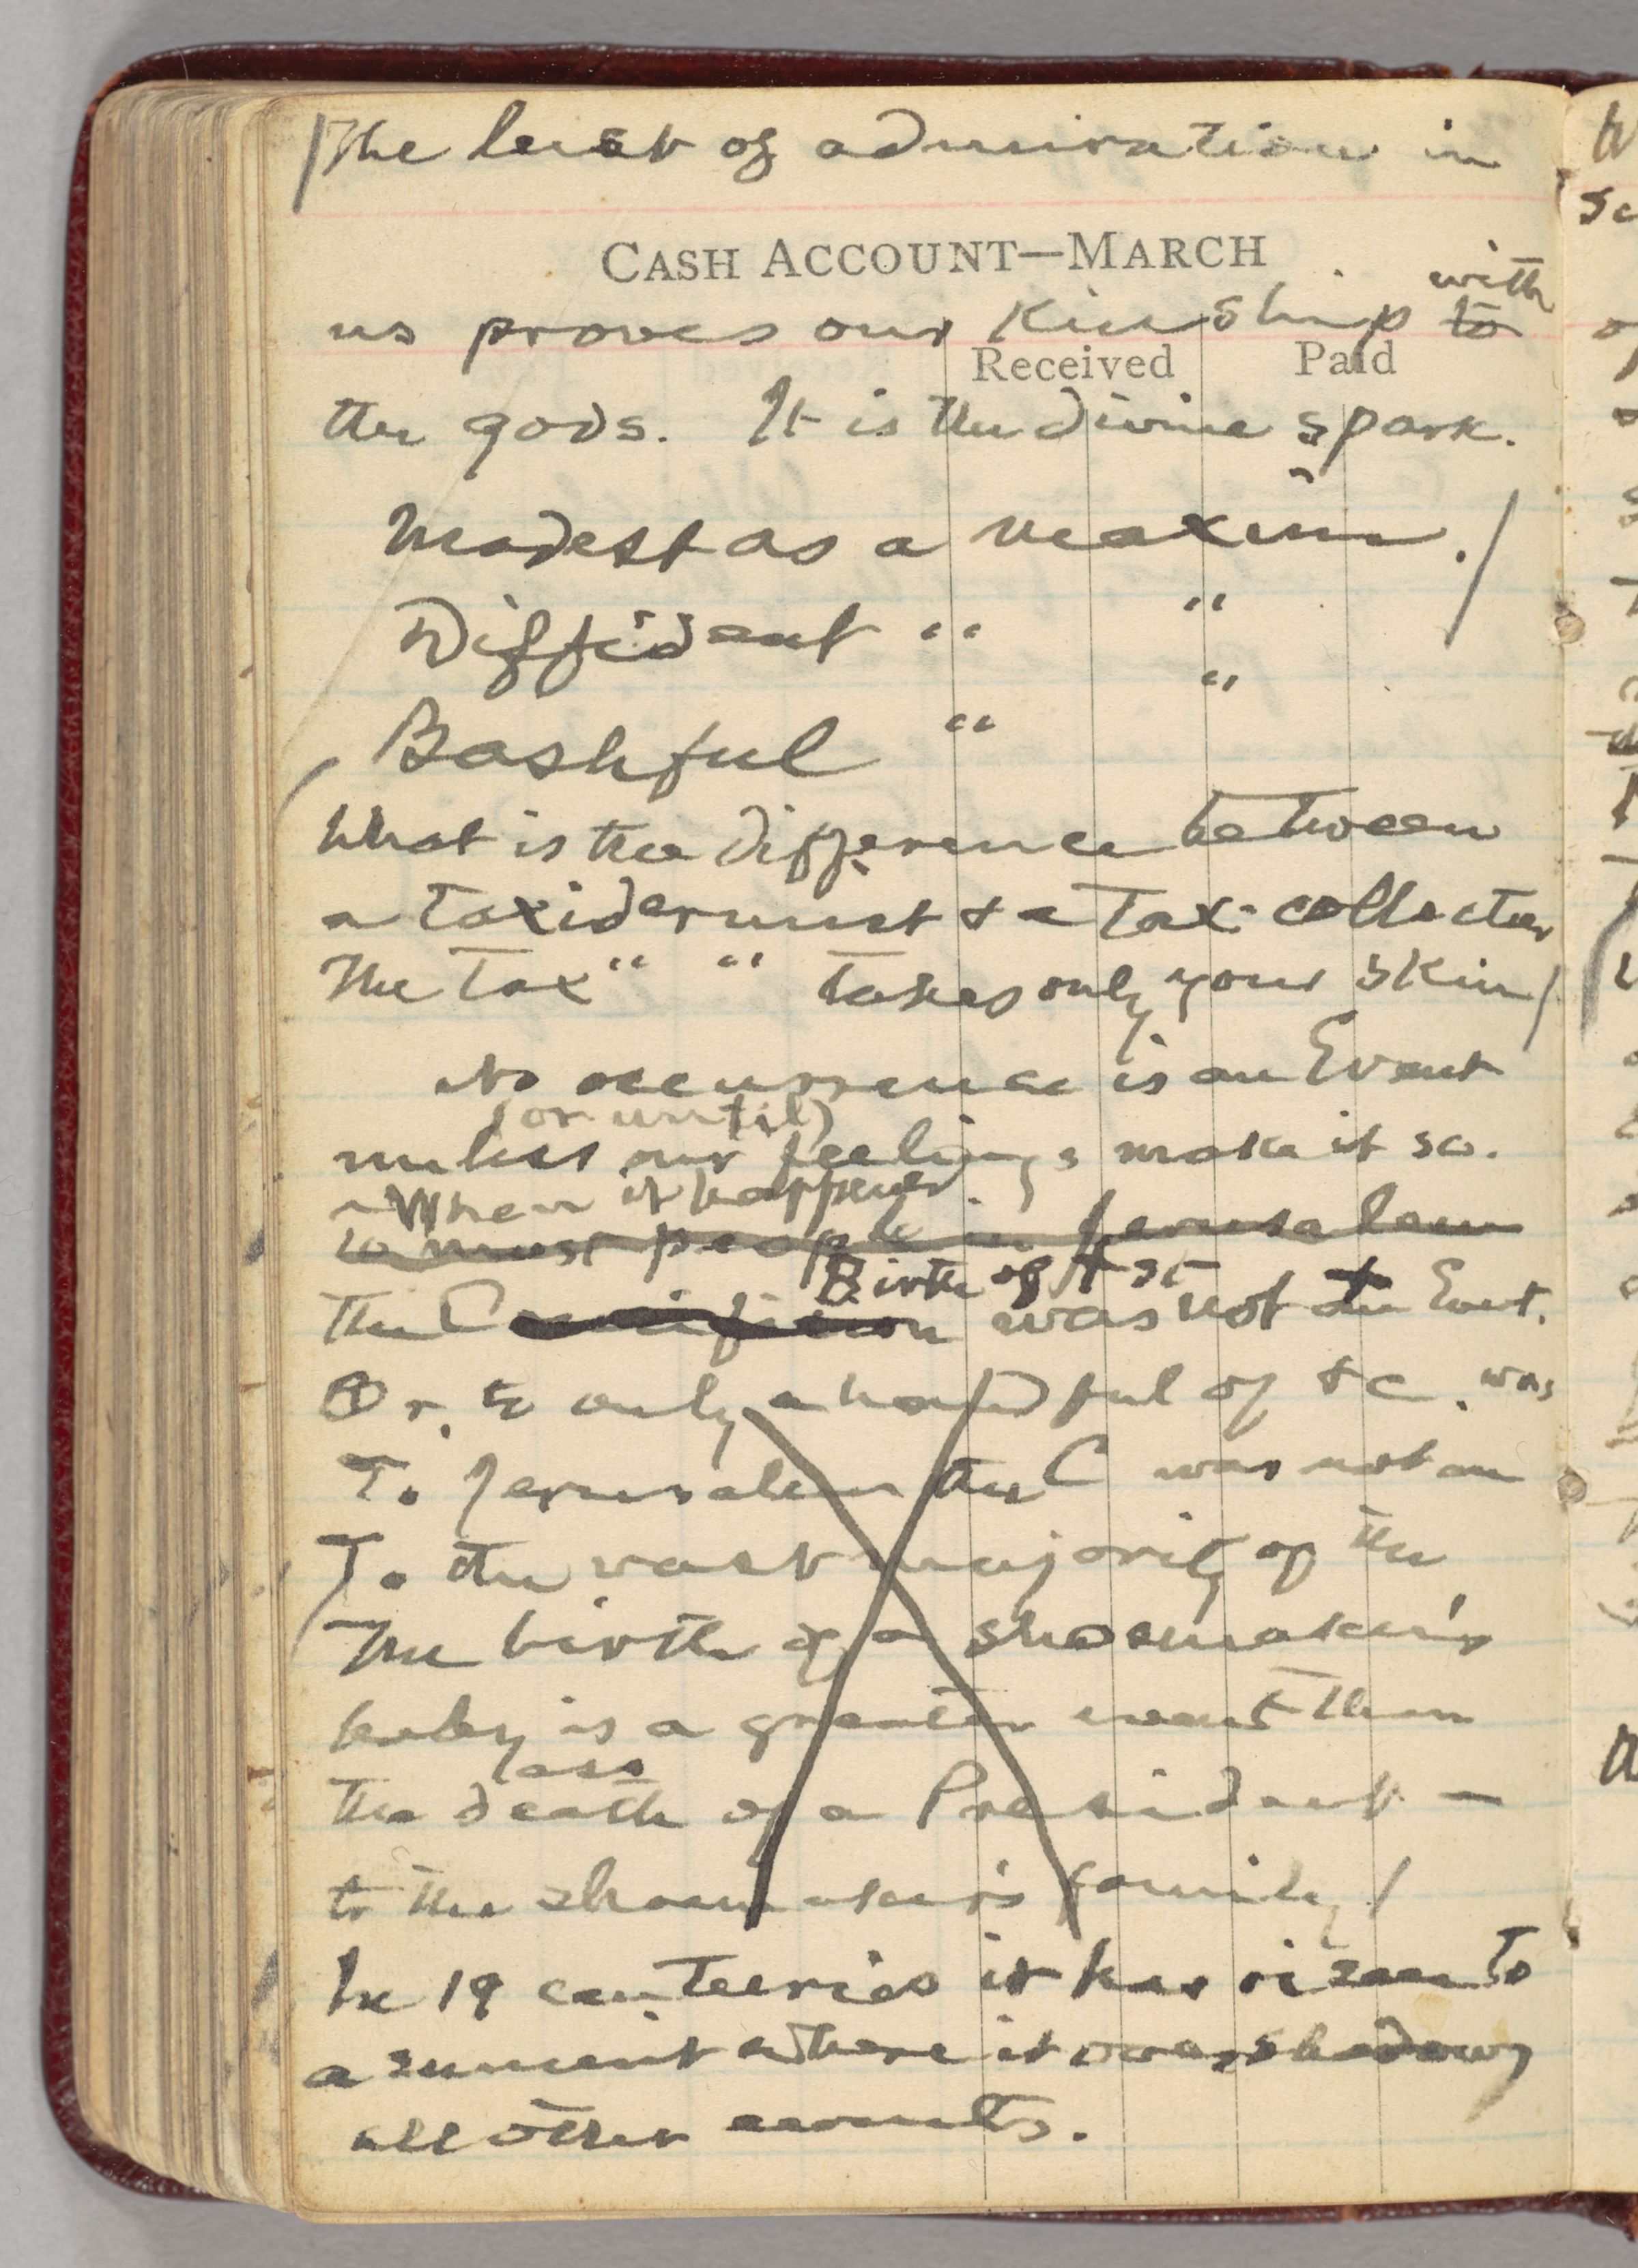 The lust of admiration in
CASH ACCOUNT—MARCH
with
us proves our Kinship to
Received Paid
the gods. It is the divine spark.
Modest as a maxim.
Diffident " "
Bashful " "
What is the difference between
a Taxidermist & a Tax-collector
The Tax " " takes only your skin/
No occurrence is an Event
(or until)
unless our feelings make it so.
When it happened
to most people in Jerusalem
Birth of
The C was not an Event.
Or, to only a handful of &c. was
To Jerusalem the C was not an
To the vast majority of the
The birth of a shoemaker's
baby is a greater event than
loss
the death of a President —
to the shoemaker's family/
In 19 centuries it has risen to
a sumit where it overshadows
all other events.